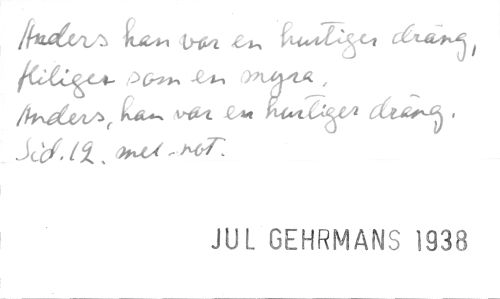 Anders han var en hurtiger dräng,
flitiger som en myra.
Anders, han var en hurtiger dräng.
Sid. 12. mel-not.
JUL GEHRMANS 1938